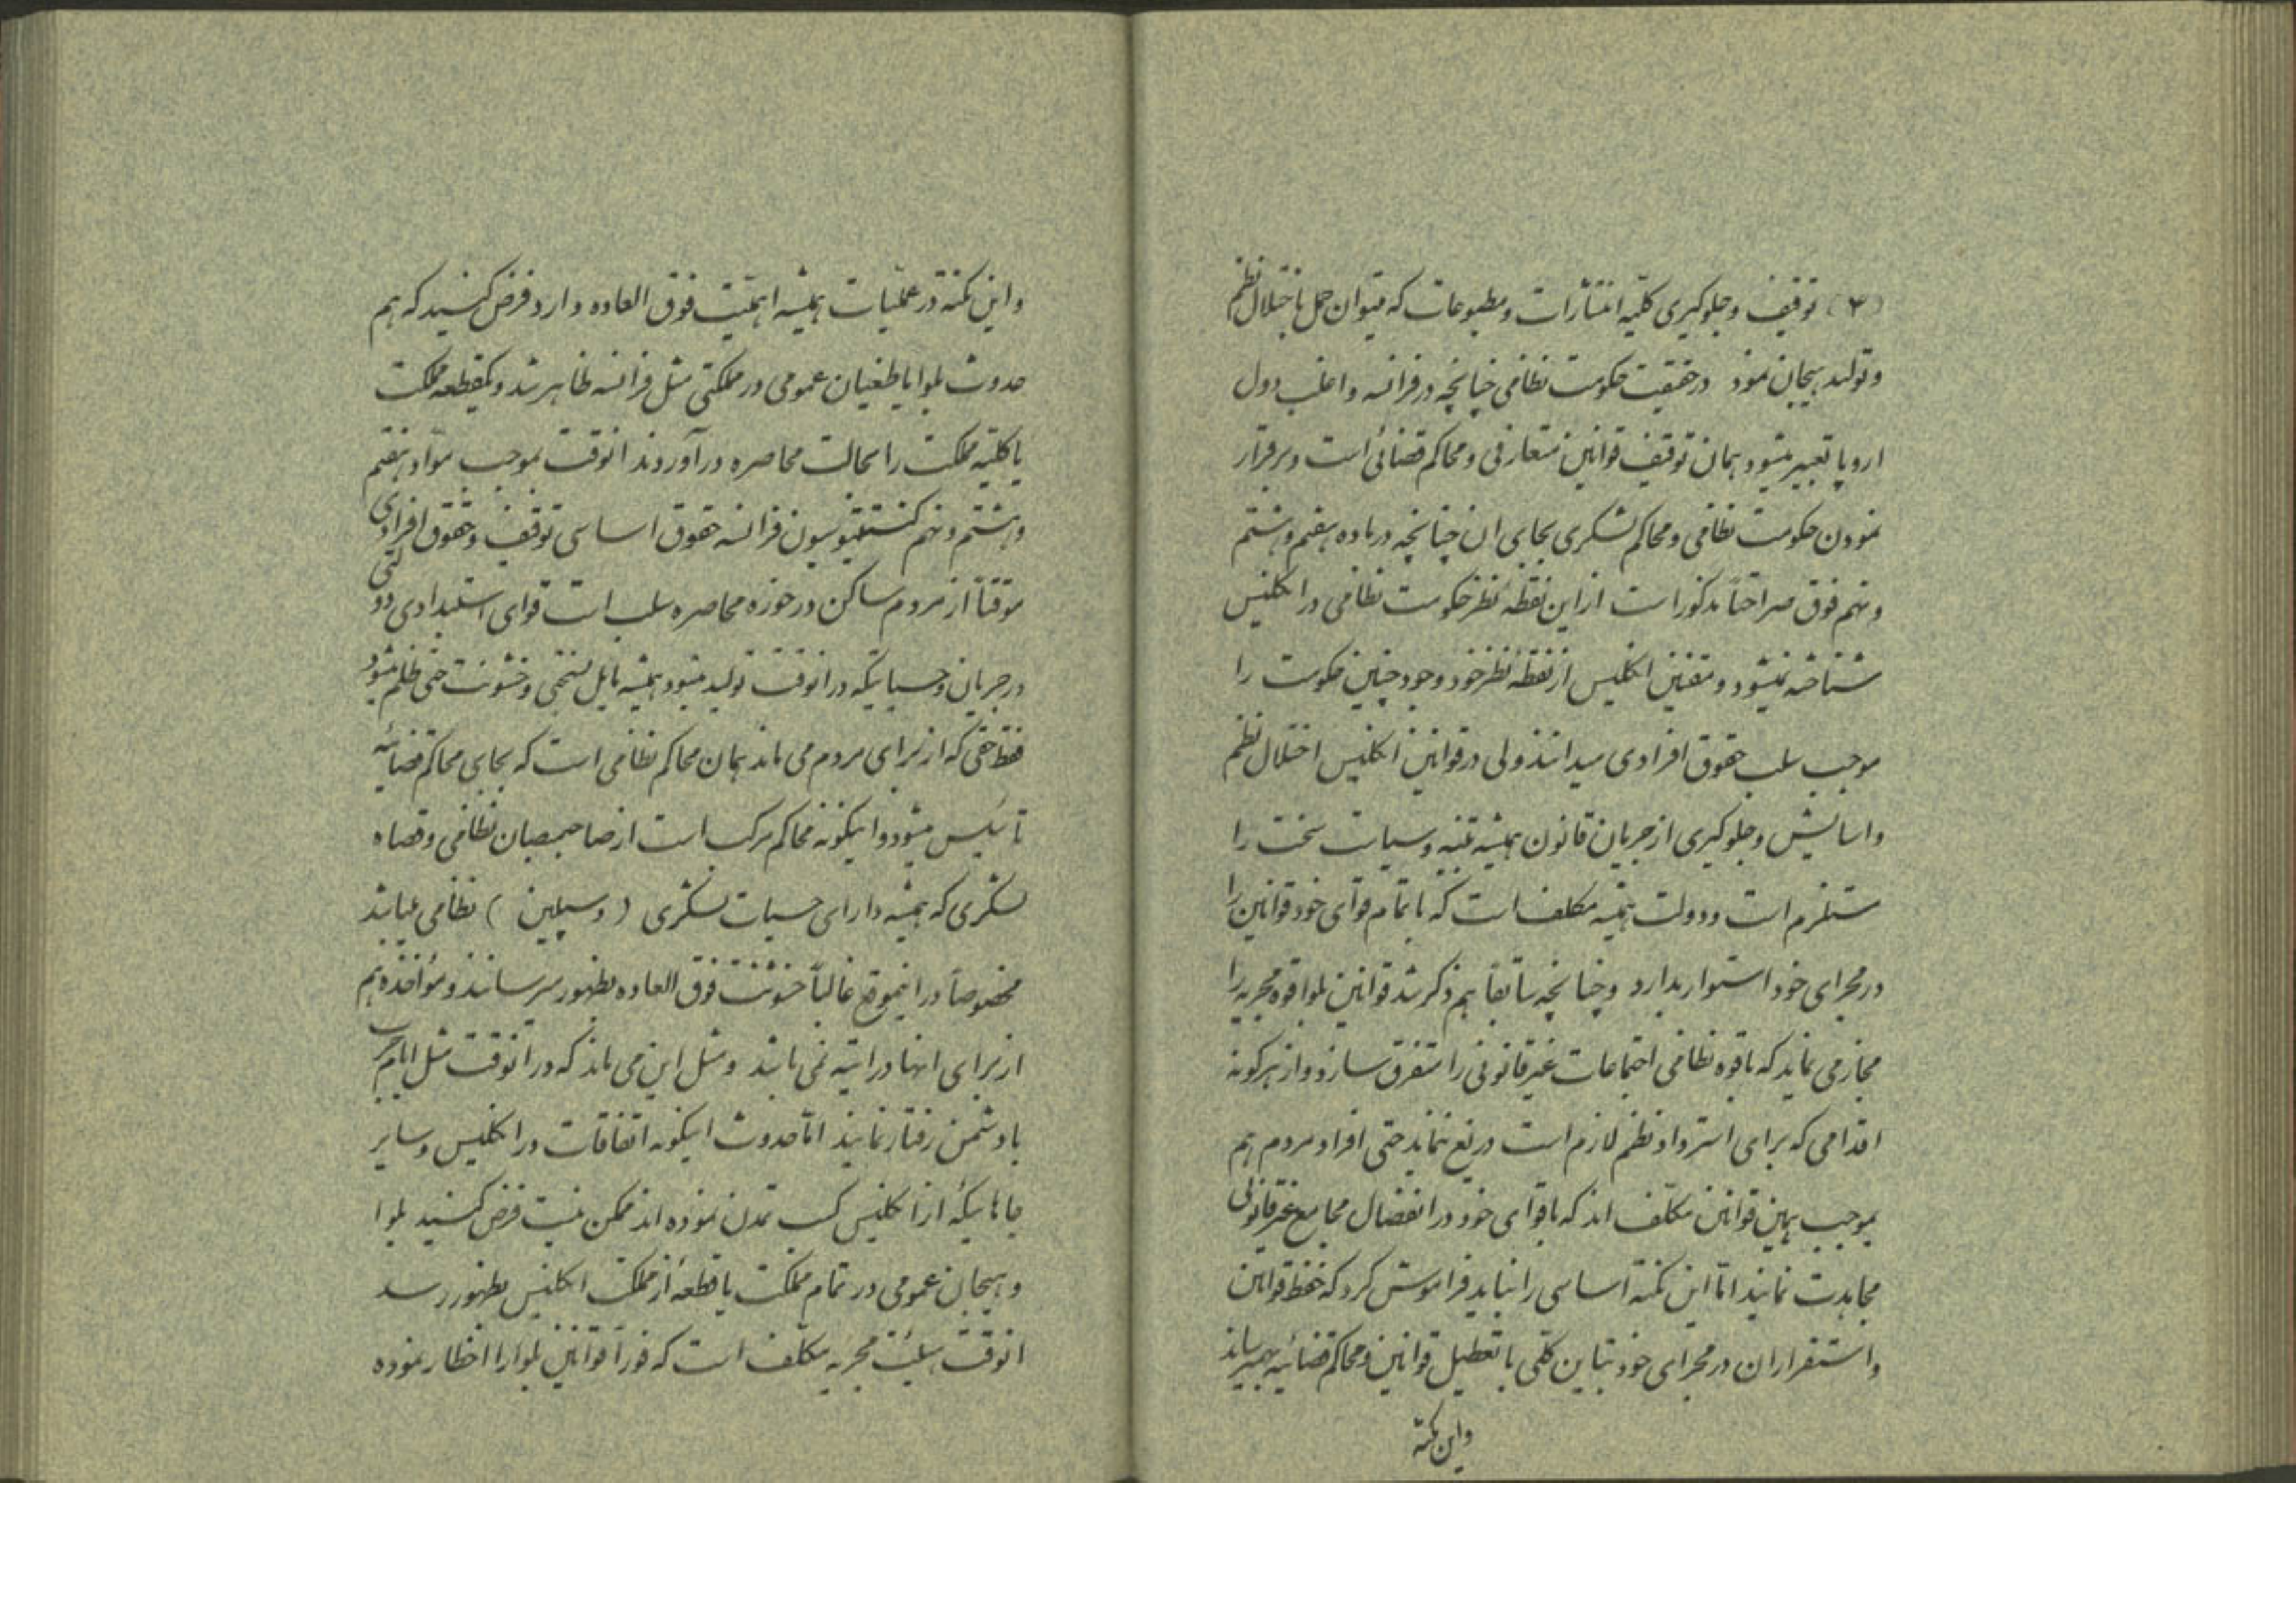 (۳) توقیف و جلوکیری کلیّه انتشارات و مطبوعات که میتوان حمل باختلال نظم
و تولید هیجان نمود در حقیقت حکومت نظامی چنانچه در فرانسه و اغلب دول
اروپا تعبیر میشود همان توقیف قوانین متعارفی و محاکم قضائی است و برقرار
نمودن حکومت نظامی و محاکم لشکری بجای ان چنانچه در ماده هفتم و هشتم
و نهم فوق صراحتاً مذکور است از این نقطه نظر حکومت نظامی در انکلیس
شناخته نمیشود و مقنین انکلیس از نقطه نظر خود وجود چنین حکومت را
موجب سلب حقوق افرادی میدانند ولی در قوانین انکلیس اختلال نظم
و اسایش و جلوکیری از جریان قانون همیشه تنبیه و سیاست سخت را
مستلزم است و دولت همیشه مکلف است که با تمام قوای خود قوانین را
در مجرای خود استوار بدارد و چنانچه سابقاً هم ذکر شد قوانین بلوا قوه مجریه را
مجاز می نماید که با قوه نظامی اجتماعات غیر قانونی را متفرق سازد و از هرکونه
اقدامی که برای استرداد نظم لازم است دریغ ننماید حتی افراد مردم هم
بموجب همین قوانین مکلّف اند که با قوای خود در انفصال مجامع غیر قانونی
مجاهدت نمایند امّا این نکته اساسی را نباید فراموش کرد که حفظ قوانین
و استقرار ان در مجرای خود تباین کلّی با تعطیل قوانین و محاکم قضائیه بهم میرساند
و این نکته
و این نکته در عملّیات همیشه اهمّیت فوق العاده دارد فرض کنید که هم
حدوث بلوا یا طغیان عمومی در مملکتی مثل فرانسه ظاهر شد و یکقطعه مملکت
یا کلّیه مملکت را بحالت محاصره در آوردند انوقت بموجب موّاد هفتم
و هشتم و نهم کنستیتوسیون فرانسه حقوق اساسی توقیف و حقوق افرادی
موقتاً از مردم ساکن در حوزه محاصره سلب است قوای استبدادی دولتی
در جریان و حسیاتیکه در انوقت تولید میشود همیشه مایل بسختی و خشونت حتی ظلم میشود
فقط حقی که از برای مردم می ماند همان محاکم نظامی است که بجای محاکم قضائیه
تأسیس میشود و اینکونه محاکم مرکب است از صاحبمنصبان نظامی و قضاه
لشکری که همیشه دارای حسیات لشکری ( دسیپلین ) نظامی میباشد
مخصوصاً در اینموقع غالباً خشونت فوق العاده بظهور میرسانند و مؤاخذه هم
از برای انها در اتیه نمی باشد و مثل این می ماند که در انوقت مثل ایام حرب
با دشمن رفتار نمایند امّا حدوث اینکونه اتفاقات در انکلیس و سایر
جاهائیکه از انکلیس کسب تمدن نموده اند ممکن نیست فرض کنید بلوا
و هیجان عمومی در تمام مملکت یا قطعهٔ از مملکت انکلیس بظهور رسد
انوقت هیئت مجریه مکلّف است که فوراً قوانین بلوا را اخطار نموده